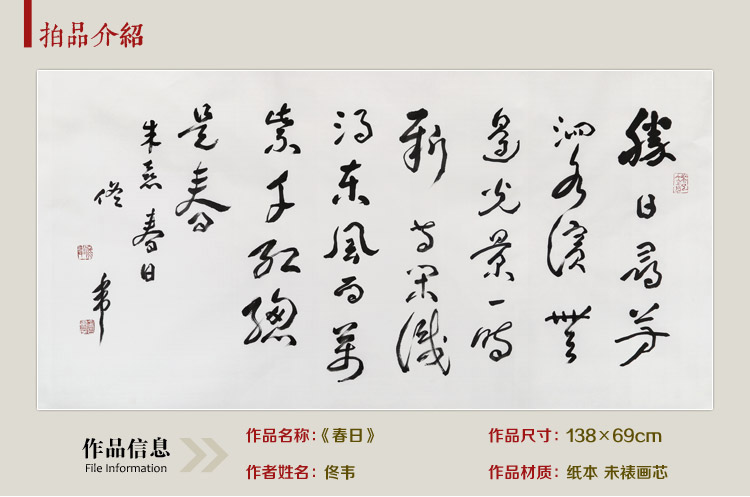 拍品介紹
勝日尋芳
泗水濱無
邊光景一時
新等閑識
得東風面萬
紫千紅總
是春
朱熹春日
佟韦
作品信息
File Information
作品名称：《春日》
作品尺寸：138×69cm
作者姓名：佟韦
作品材质：纸本 未裱画芯